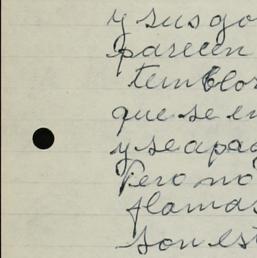 y sus go
parecen
temblor
que se en
y se apag
Pero no
flamas
son est